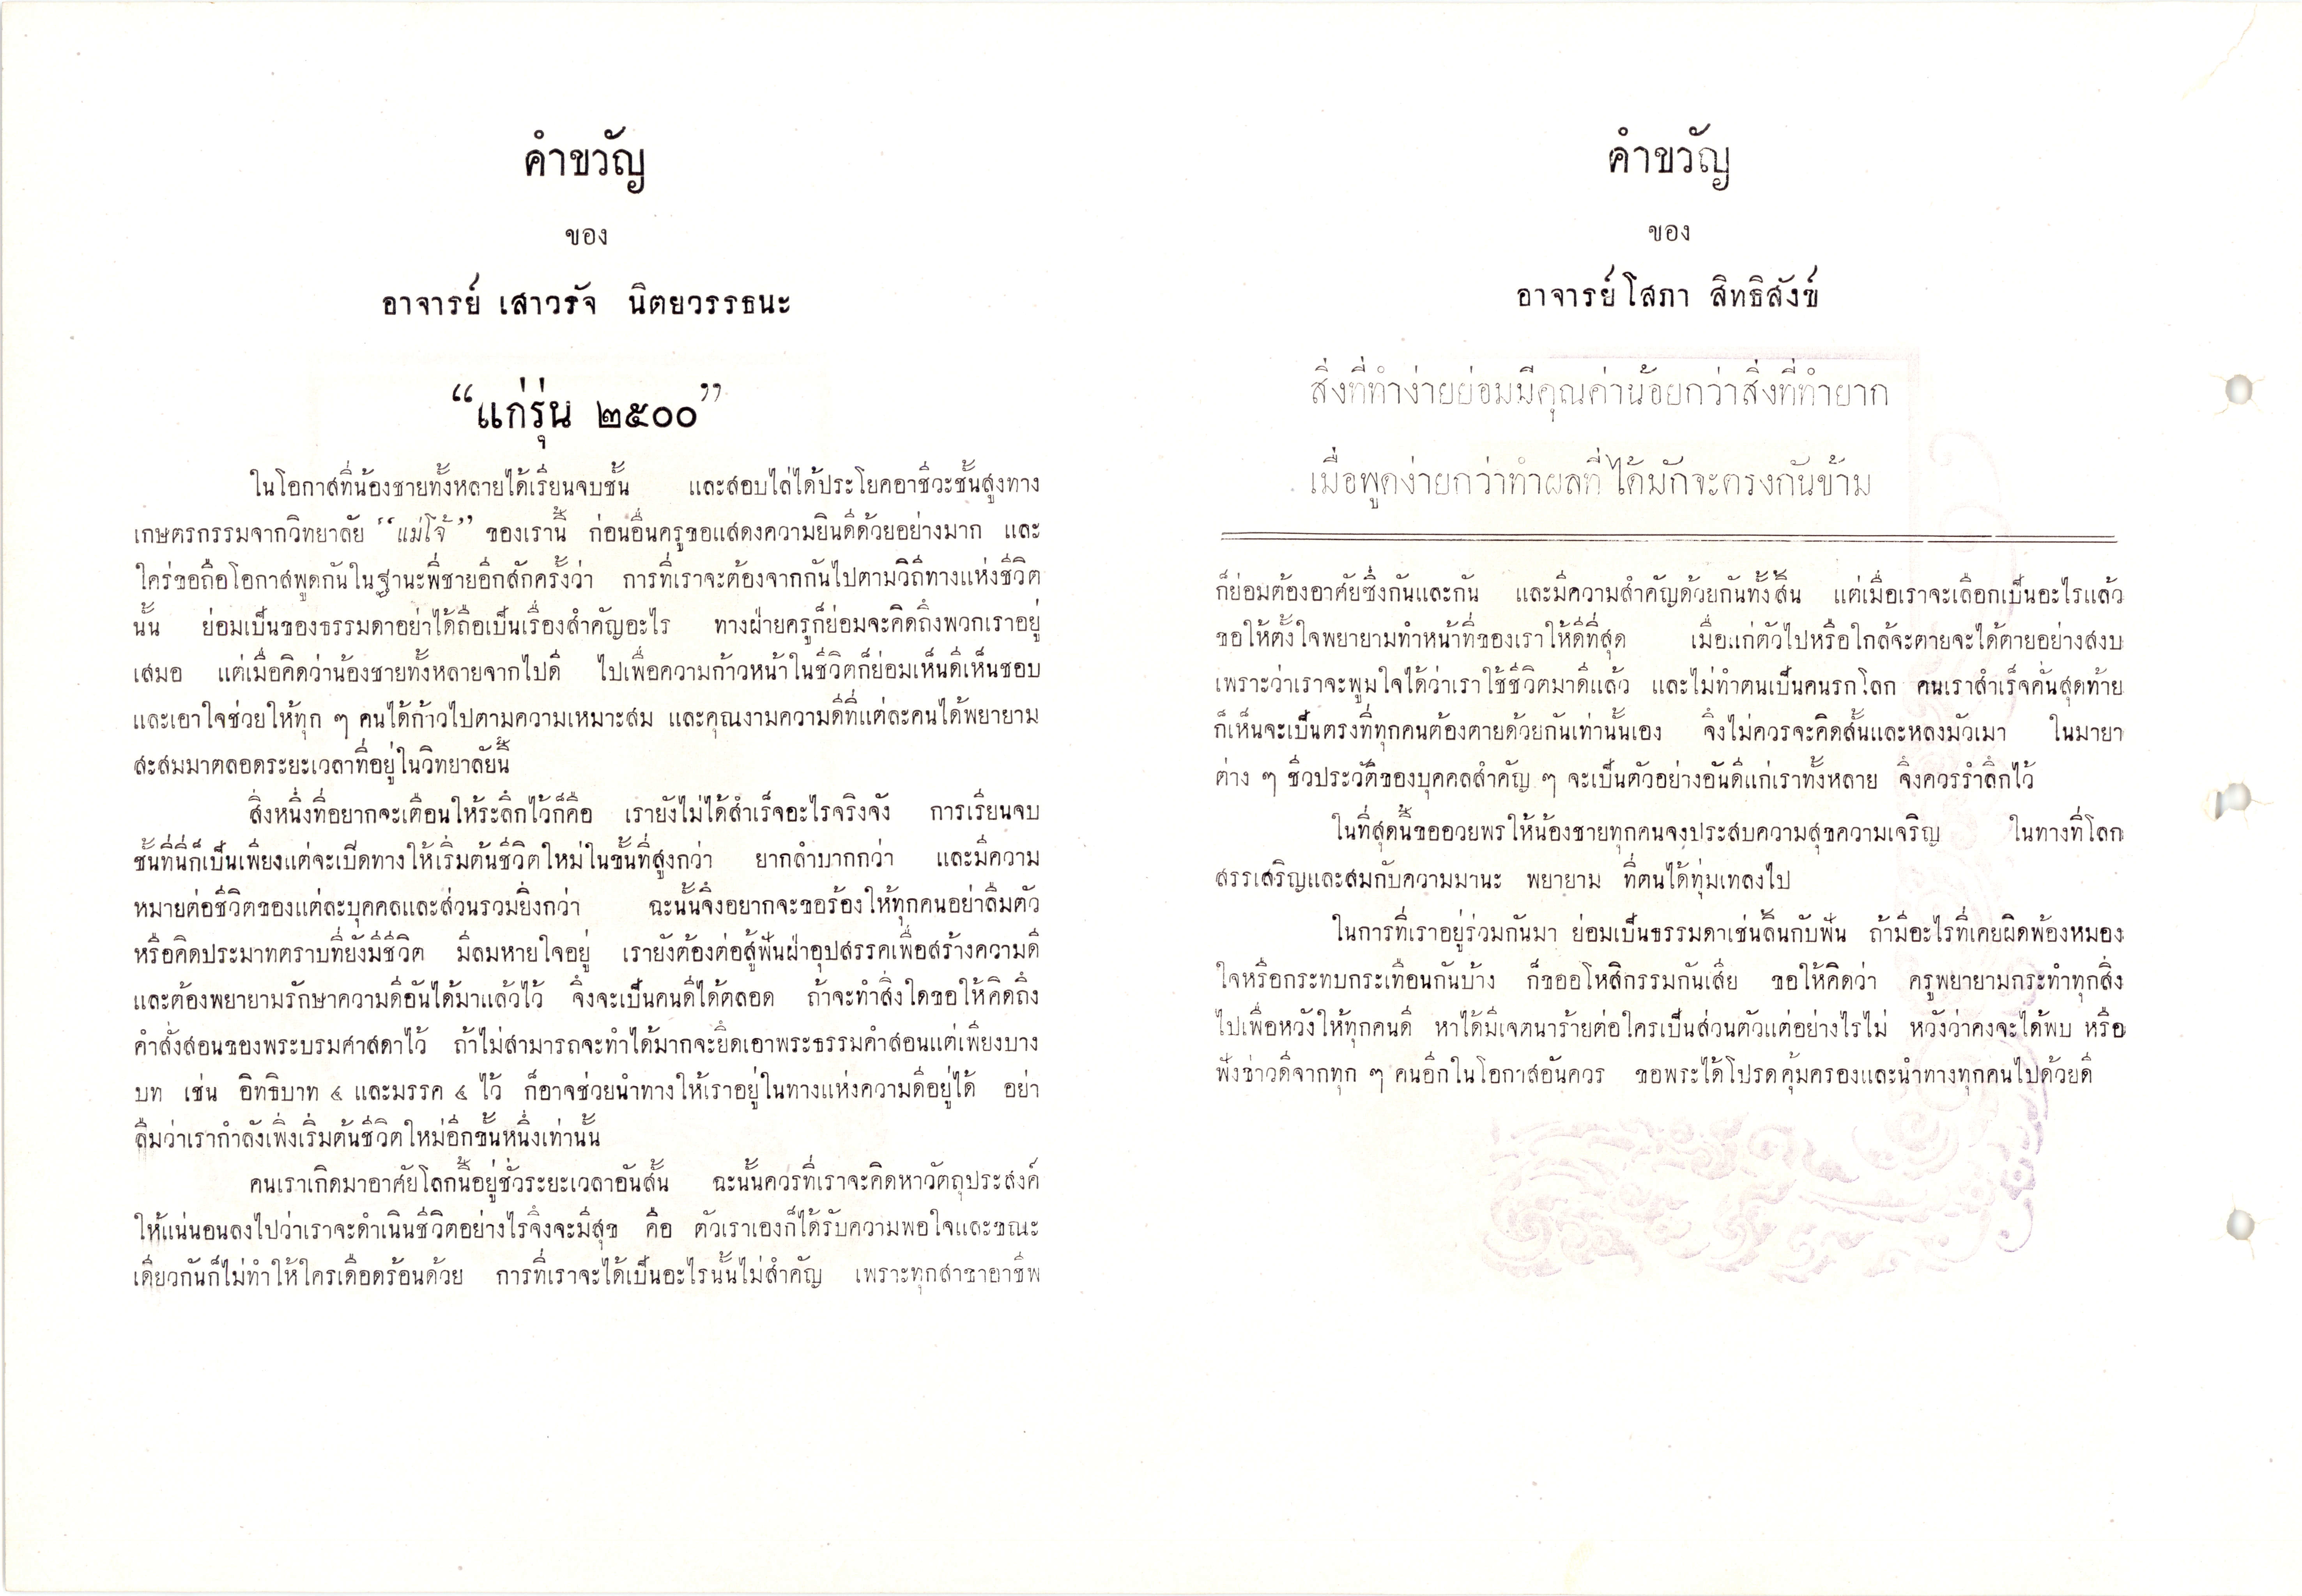 คำขวัญ
ของ
อาจารย์ เสาวรัจ นิตยวรรธนะ
“แก่รุ่น ๒๕๐๐”
ในโอกาสที่น้องชายทั้งหลายได้เรียนจบชั้น และสอบไล่ได้ประโยคอาชีวะชั้นสูงทาง
เกษตรกรรมจากวิทยาลัย “แม่โจ้” ของเรานี้ ก่อนอื่นครูขอแสดงความยินดีด้วยอย่างมาก และ
ใคร่ขอถือโอกาสพูดกันในฐานะพี่ชายอีกสักครั้งว่า การที่เราจะต้องจากกันไปตามวิถีทางแห่งชีวิต
นั้น ย่อมเป็นของธรรมดาอย่าได้ถือเป็นเรื่องสำคัญอะไร ทางฝ่ายครูก็ย่อมจะคิดถึงพวกเราอยู่
เสมอ แต่เมื่อคิดว่าน้องชายทั้งหลายจากไปดี ไปเพื่อความก้าวหน้าในชีวิตก็ย่อมเห็นดีเห็นชอบ
และเอาใจช่วยให้ทุก ๆ คนได้ก้าวไปตามความเหมาะสม และคุณงามความดีที่แต่ละคนได้พยายาม
สะสมมาตลอดระยะเวลาที่อยู่ในวิทยาลัยนี้
สิ่งหนึ่งที่อยากจะเตือนให้ระลึกไว้ก็คือ เรายังไม่ได้สำเร็จอะไรจริงจัง การเรียนจบ
ชั้นที่นี่ก็เป็นเพียงแต่จะเปิดทางให้เริ่มต้นชีวิตใหม่ในขั้นที่สูงกว่า ยากลำบากกว่า และมีความ
หมายต่อชีวิตของแต่ละบุคคลและส่วนรวมยิ่งกว่า ฉะนั้นจึงอยากจะขอร้องให้ทุกคนอย่าลืมตัว
หรือคิดประมาทตราบที่ยังมีชีวิต มีลมหายใจอยู่ เรายังต้องต่อสู้ฟันฝ่าอุปสรรคเพื่อสร้างความดี
และต้องพยายามรักษาความดีอันได้มาแล้วไว้ จึงจะเป็นคนดีได้ตลอด ถ้าจะทำสิ่งใดขอให้คิดถึง
คำสั่งสอนของพระบรมศาสดาไว้ ถ้าไม่สามารถจะทำได้มากจะยึดเอาพระธรรมคำสอนแต่เพียงบาง
บท เช่น อิทธิบาท ๔ และมรรค ๘ ไว้ ก็อาจช่วยนำทางให้เราอยู่ในทางแห่งความดีอยู่ได้ อย่า
ลืมว่าเรากำลังเพิ่งเริ่มต้นชีวิตใหม่อีกขั้นหนึ่งเท่านั้น
คนเราเกิดมาอาศัยโลกนี้อยู่ชั่วระยะเวลาอันสั้น ฉะนั้นควรที่เราจะคิดหาวัตถุประสงค์
ให้แน่นอนลงไปว่าเราจะดำเนินชีวิตอย่างไรจึงจะมีสุข คือ ตัวเราเองก็ได้รับความพอใจและขณะ
เดียวกันก็ไม่ทำให้ใครเดือดร้อนด้วย การที่เราจะได้เป็นอะไรนั้นไม่สำคัญ เพราะทุกสาขาอาชีพ
คำขวัญ
ของ
อาจารย์ โสภา สิทธิสังข์
สิ่งที่ทำง่ายย่อมมีคุณค่าน้อยกว่าสิ่งที่ทำยาก
เมื่อพูดง่ายกว่าทำผลที่ได้มักจะตรงกันข้าม
ก็ย่อมต้องอาศัยซึ่งกันและกัน และมีความสำคัญด้วยกันทั้งสิ้น แต่เมื่อเราจะเลือกเป็นอะไรแล้ว
ขอให้ตั้งใจพยายามทำหน้าที่ของเราให้ดีที่สุด เมื่อแก่ตัวไปหรือใกล้จะตายจะได้ตายอย่างสงบ
เพราะว่าเราจะพูมใจได้ว่าเราใช้ชีวิตมาดีแล้ว และไม่ทำตนเป็นคนรกโลก คนเราสำเร็จคั่นสุดท้าย
ก็เห็นจะเป็นตรงที่ทุกคนต้องตายด้วยกันเท่านั้นเอง จึงไม่ควรจะคิดสั้นและหลงมัวเมา ในมายา
ต่าง ๆ ชีวประวัติของบุคคลสำคัญ ๆ จะเป็นตัวอย่างอันดีแก่เราทั้งหลาย จึงควรรำลึกไว้
ในที่สุดนี้ขออวยพรให้น้องชายทุกคนจงประสบความสุขความเจริญ ในทางที่โลก
สรรเสริญและสมกับความมานะ พยายาม ที่ตนได้ทุ่มเทลงไป
ในการที่เราอยู่ร่วมกันมา ย่อมเป็นธรรมดาเช่นลิ้นกับฟัน ถ้ามีอะไรที่เคยผิดพ้องหมอง
ใจหรือกระทบกระเทือนกันบ้าง ก็ขออโหสิกรรมกันเสีย ขอให้คิดว่า ครูพยายามกระทำทุกสิ่ง
ไปเพื่อหวังให้ทุกคนดี หาได้มีเจตนาร้ายต่อใครเป็นส่วนตัวแต่อย่างไรไม่ หวังว่าคงจะได้พบ หรือ
ฟังข่าวดีจากทุก ๆ คนอีกในโอกาสอันควร ขอพระได้โปรดคุ้มครองและนำทางทุกคนไปด้วยดี